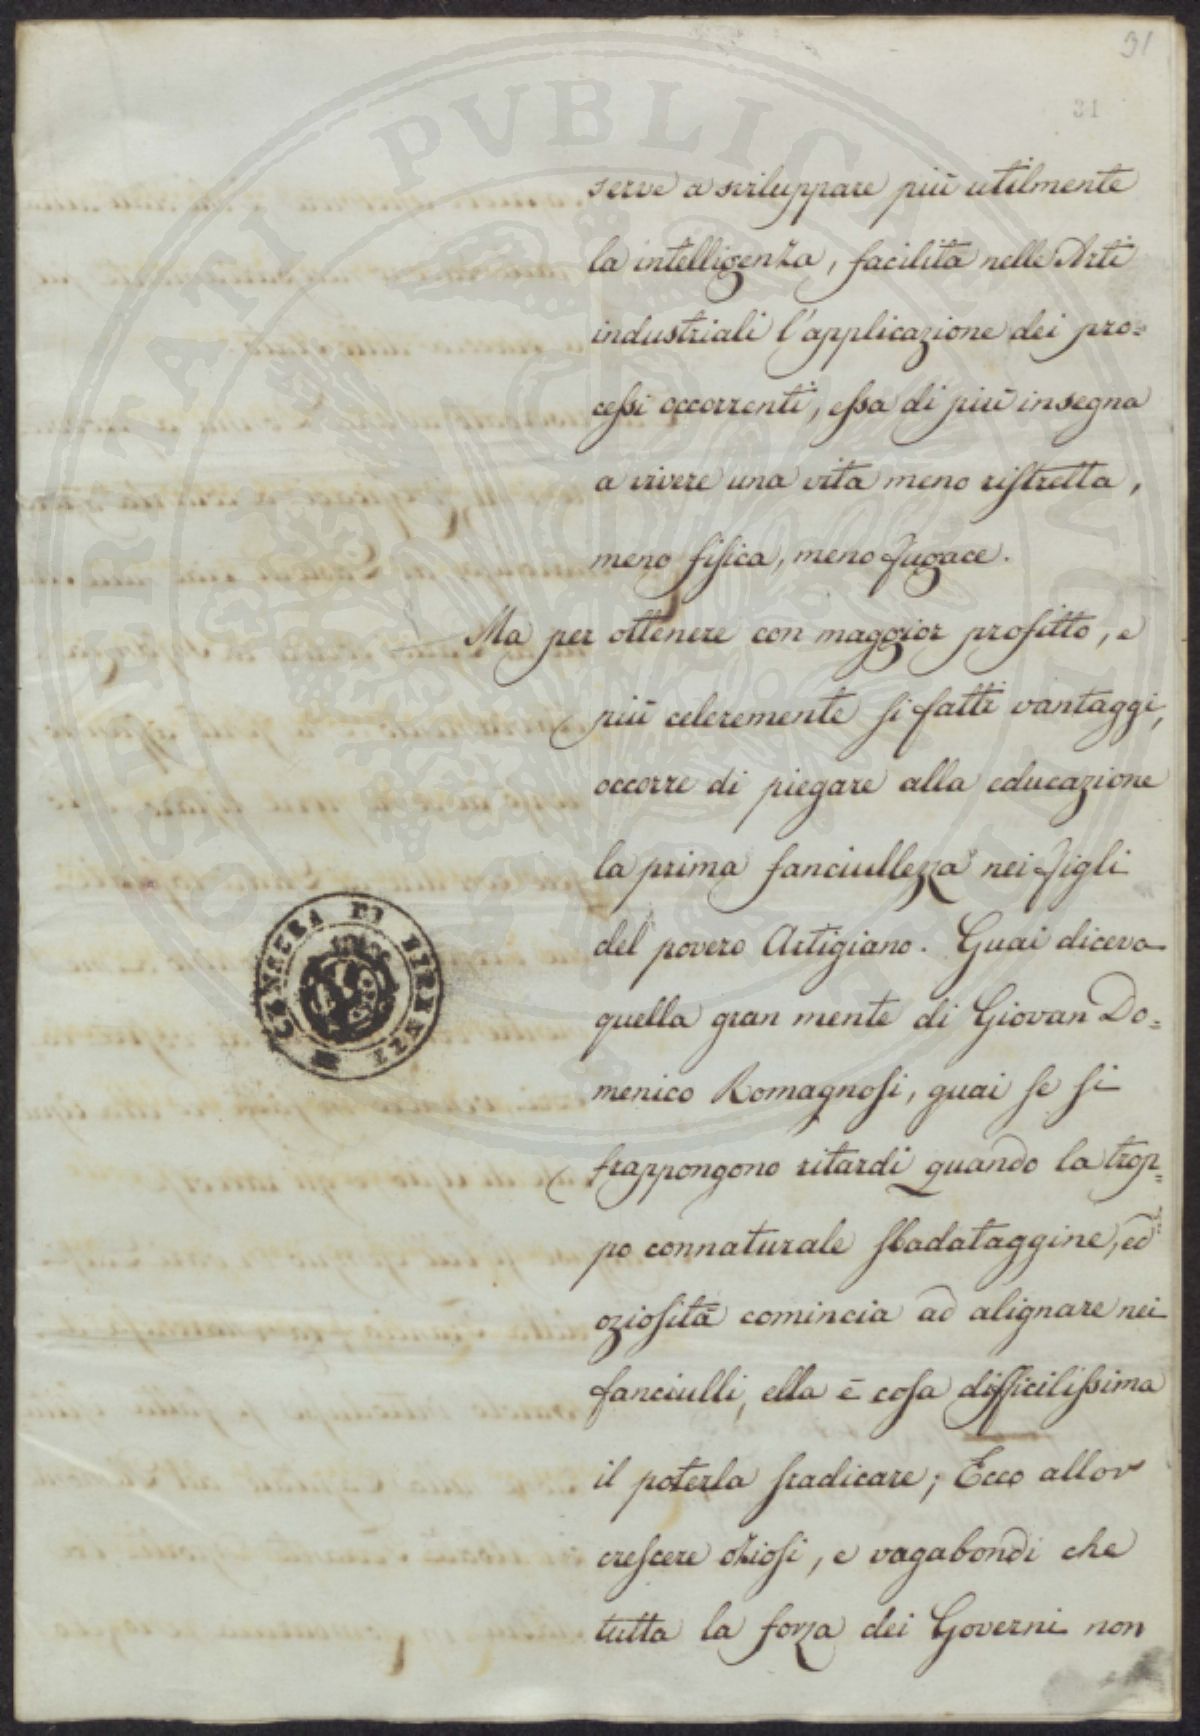 31
31
serve a sviluppare più utilmente
la intelligenza, facilita nelle Arti
industriali l'applicazione dei pro=
cessi occorrenti, essa di più insegna
a vivere una vita meno ristretta,
meno fisica, meno fugace.
Ma per ottenere con maggior profitto, e
più celeremente si fatti vantaggi,
occorre di piegare alla educazione
la prima fanciullezza nei figli
del povero Artigiano. Guai diceva
quella gran mente di Giovan Do=
menico Romagnosi, guai se si
frappongono ritardi quando la trop=
po connaturale sbadataggine, ed
oziosità comincia ad alignare nei
fanciulli, ella è cosa difficilissima
il poterla sradicare; Ecco allor
crescere oziosi, e vagabondi che
tutta la forza dei Governi non
CENSURA DI FIRENZE
POSTERITATI PVBLICAE